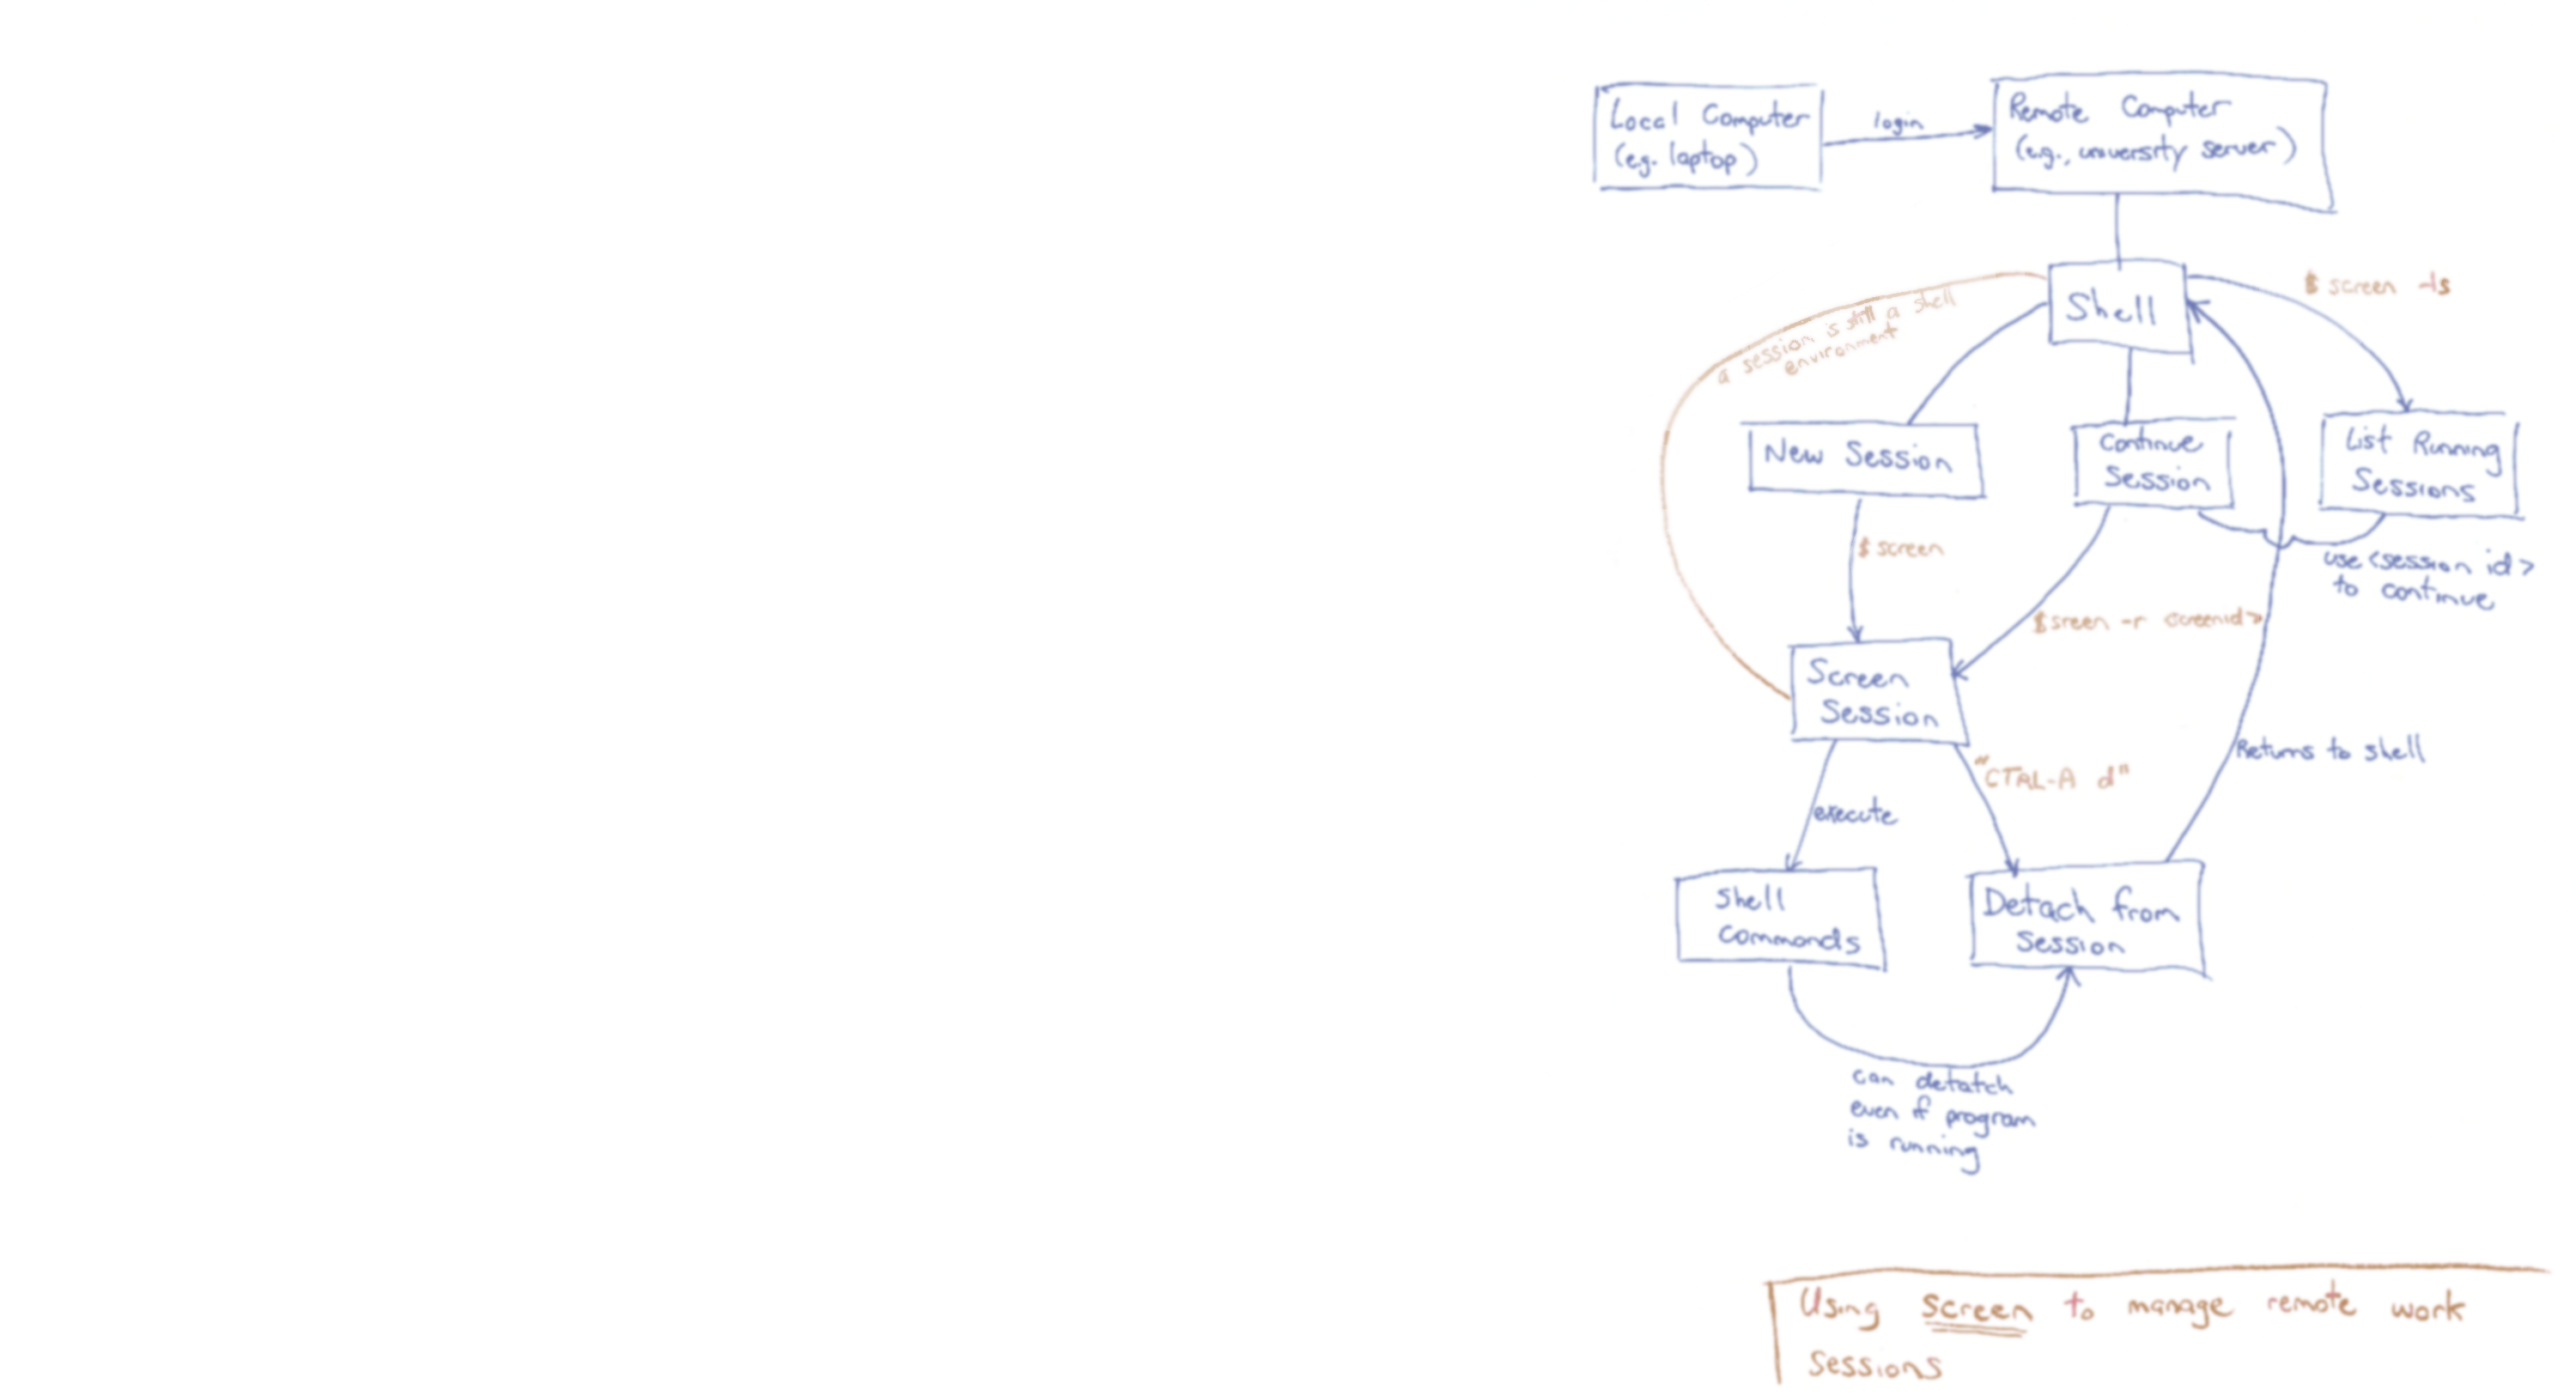 Local Computer
(eg. laptop)
login
Remote Computer
(e.g., university server)
Shell
$ screen -ls
a session is still a shell
environment
New Session
Continue
Session
List Running
Sessions
$ screen
use <session id>
to continue
$ sreen -r <screenid>
Screen
Session
Returns to shell
"CTRL-A d"
execute
shell
commands
Detach from
Session
can detatch
even if program
is running
Using screen to manage remote work
Sessions